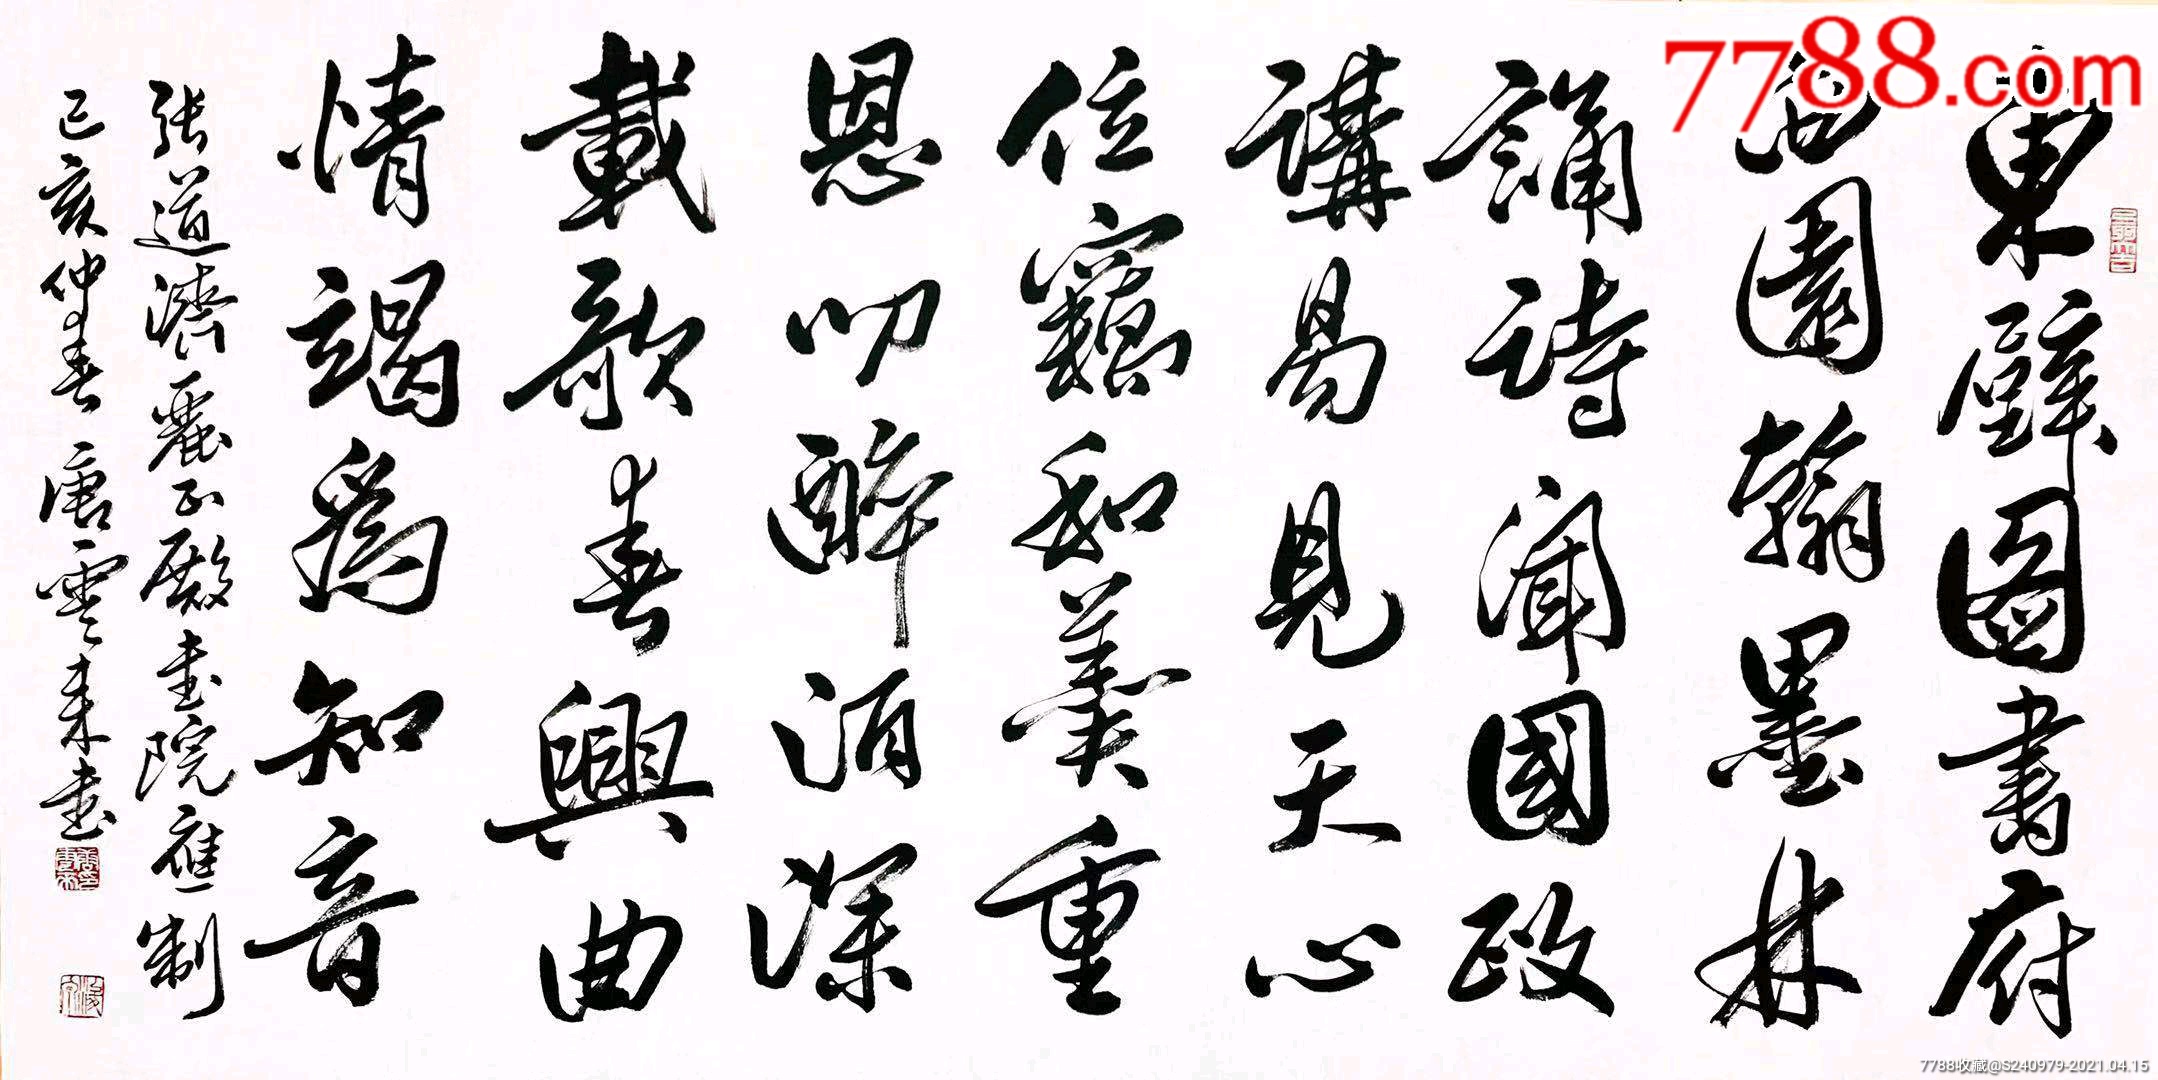 東壁圖書府
西園翰墨林
誦詩聞國政
講易見天心
位竊和羹重
恩叨醉酒深
載歌春興曲
情竭為知音
張道濟麗正殿書院應制
己亥仲春唐雲來書
7788.com
7788收藏@S240979-2021.04.15